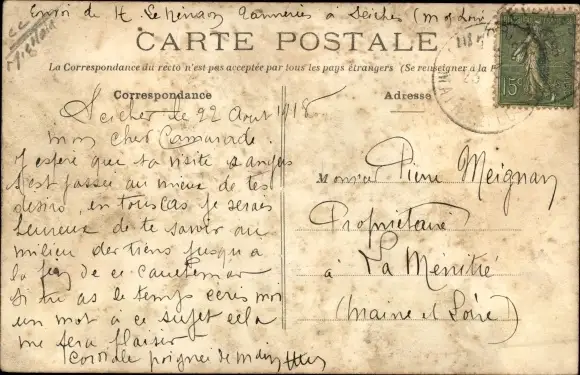 Envoi de H. Tanneries à Seiches (M et Loire
CARTE POSTALE
La Correspondance du recto n'est pas acceptée par tous les pays étrangers (Se renseigner à la P
Correspondance
Seiches le 22 Aout 1918
mon cher Camarade.
J'espère que ta visite
s'est passée au mieux de tes
désirs, en tous cas je serais
heureux de te savoir au
milieu des tiens jusqu'a
la fin de ce cauchemar
Si tu as le temps ecris moi
un mot à ce sujet cela
me sera plaisir
Cordiale poignée de main
Adresse
Monsieur Pierre Meignan
Propriétaire
à La Ménitré
(Maine et Loire)
15c